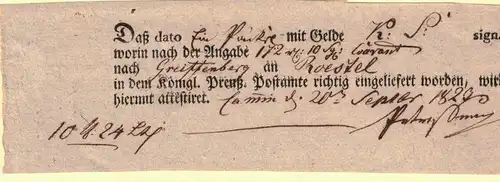 Daß dato Ein Päckch mit Gelde K: S: sign.
worin nach der Angabe 172 rt: 10 sg: Courant
nach Greiffenberg an Roestel
in dem Königl. Preuß. Postamte richtig eingeliefert worden, wir
hiermit attestiret. Camin d. 20 Septbr 1829
10 24